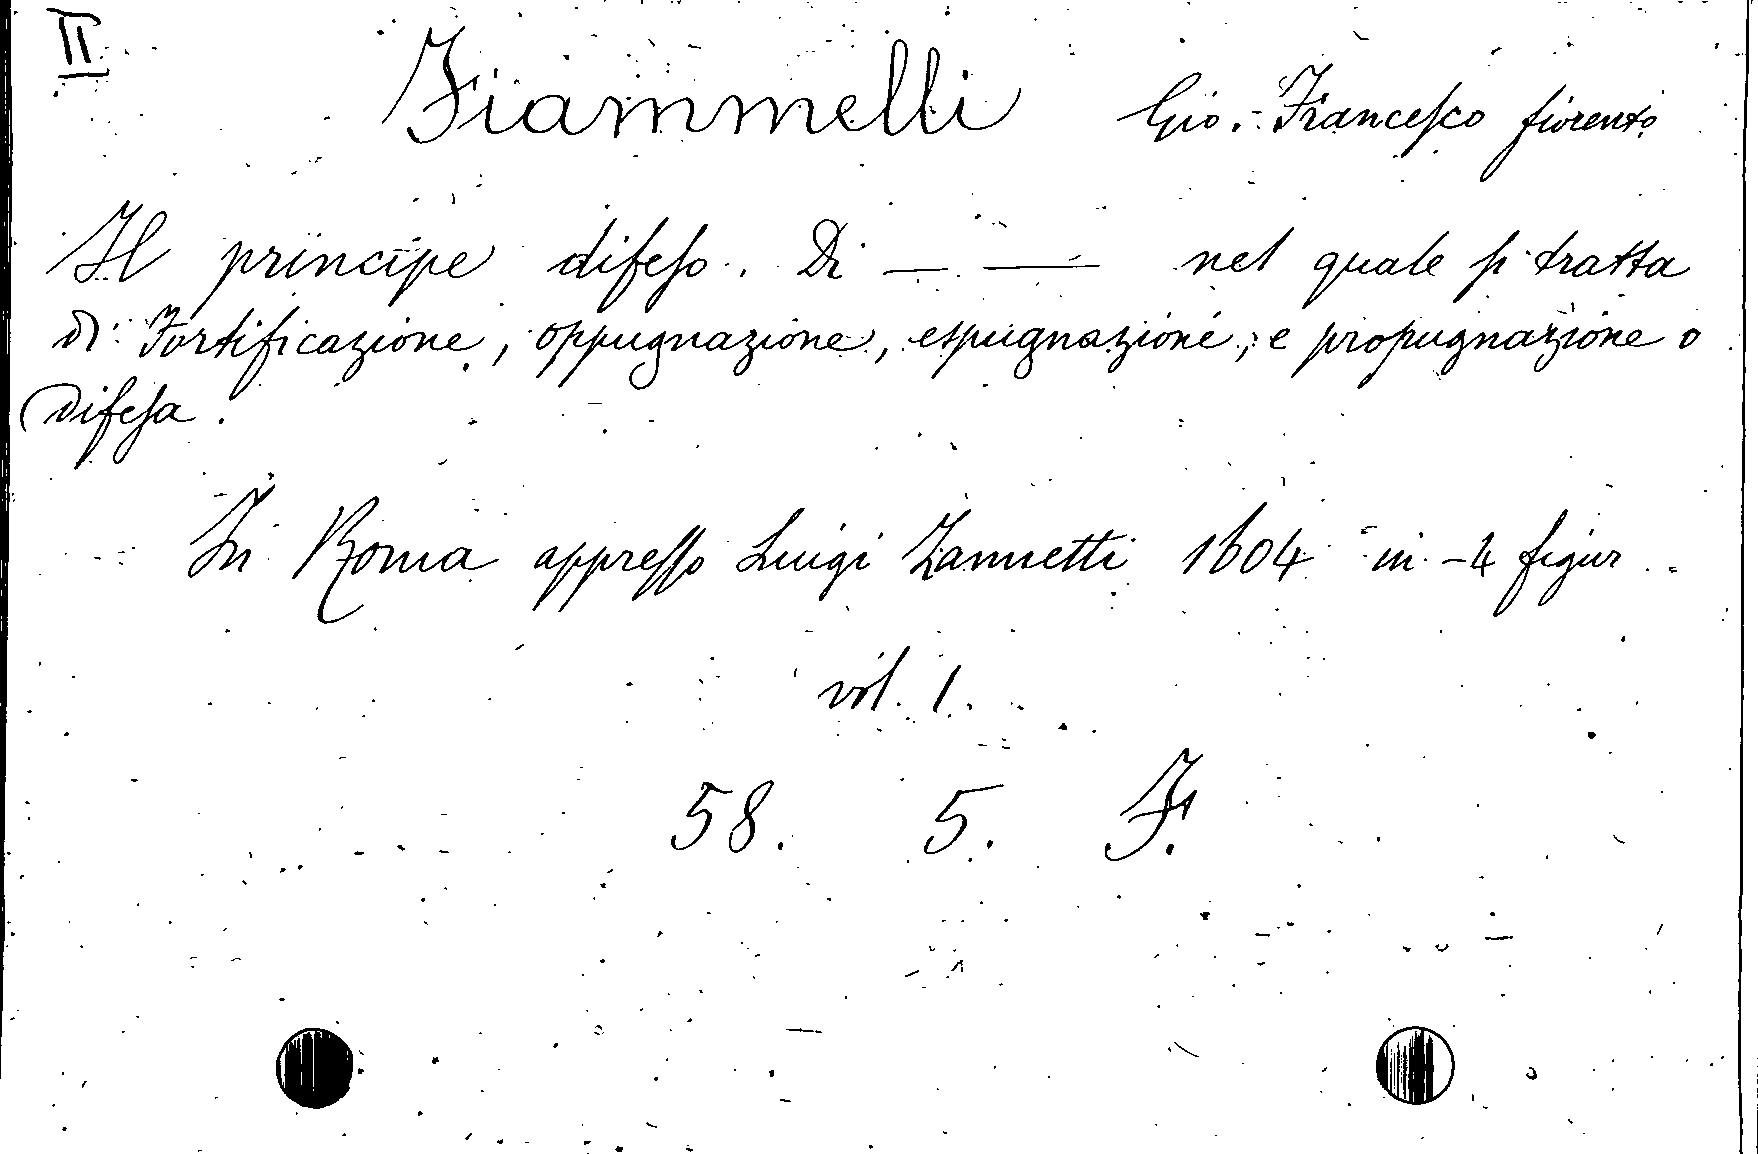 II
Fiammelli Gio. Francesco fiorento
Il principe difeso. Di — — nel quale si tratta
di Fortificazione, oppugnazione, espugnazione, e propugnazione o
difesa.
In Roma appresso Luigi Zannetti 1604 in-4 figur.
vol. 1.
58. 5. F.